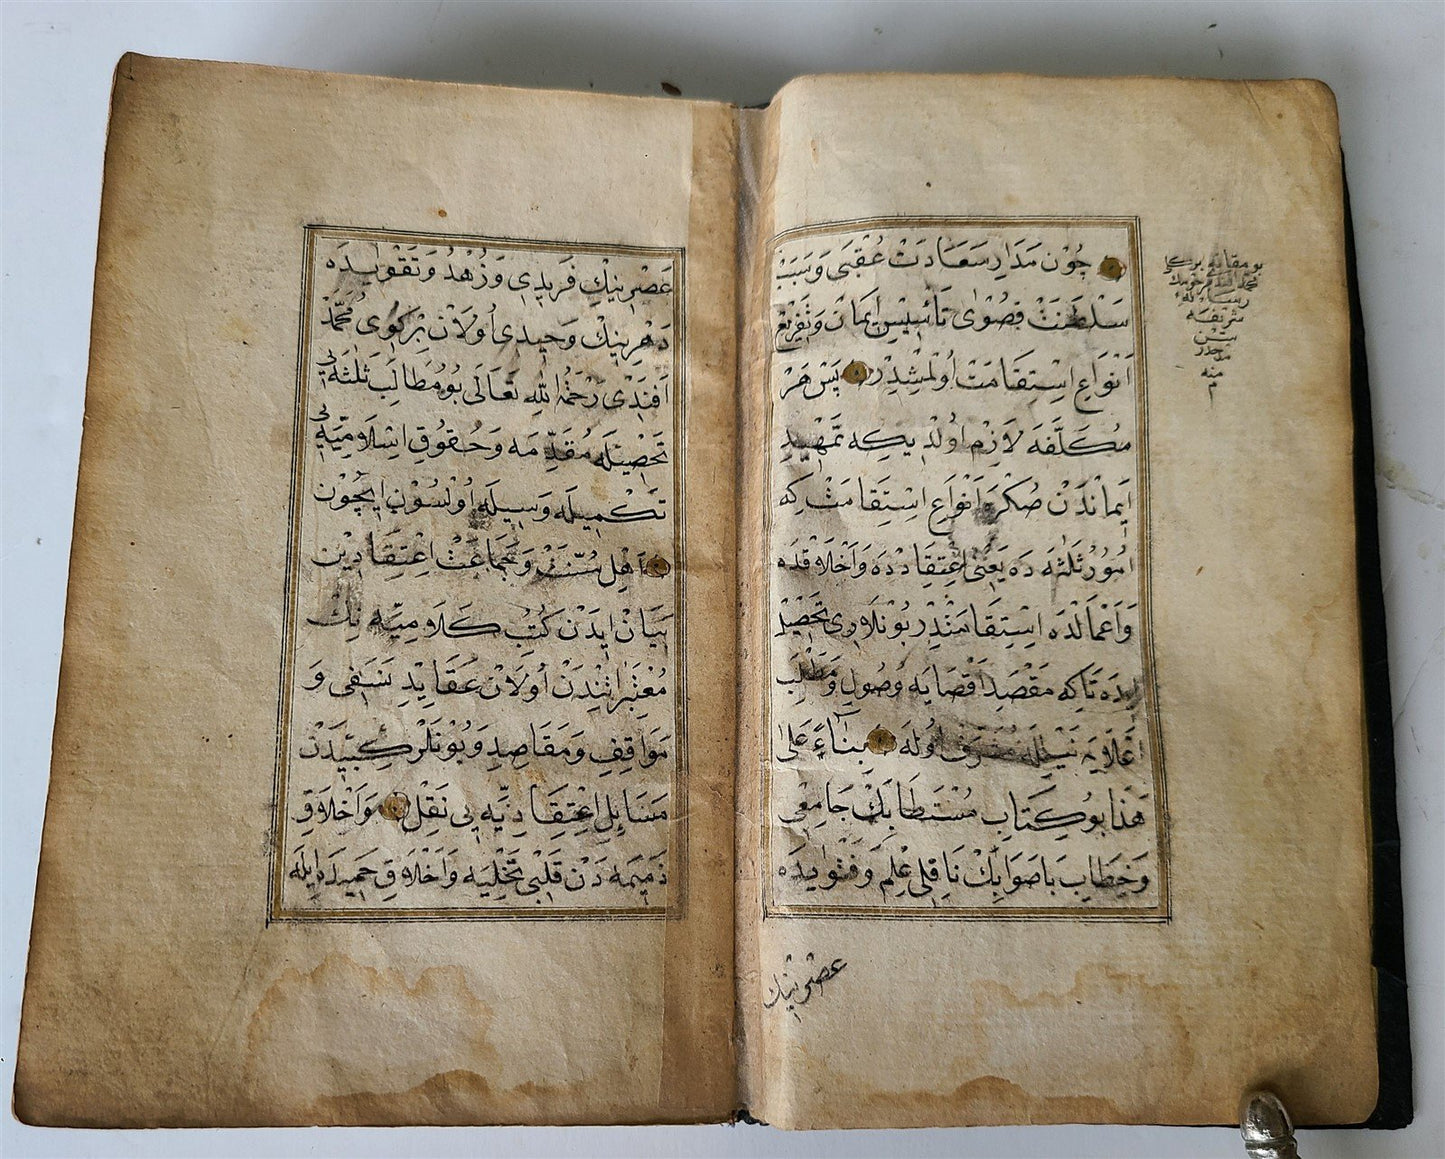 چُوْن مَدَارِ سَعَادَتْ عُقْبٰى وَسَبَبْ
سَلْطَنَتْ قُصْوٰى تَأْسِيْسِ اِيمَانْ وَتَفْرِيْعْ
اَنْوَاعِ اِسْتِقَامَتْ اُولْمِشْدِرْ پَسْ هَرْ
مُكَلَّفَه لَازِمْ اُولْدِيكِه تَمْهِيْدِ
اِيمَانْدَنْ صُكْرَه اَنْوَاعِ اِسْتِقَامَتْ كِه
اُمُورِ ثَلٰثَه دَه يَعْنٖى اِعْتِقَادْدَه وَاَخْلَاقْدَه
وَاَعْمَالْدَه اِسْتِقَامَتْدِرْ بُوْنْلَرِى تَحْصٖيلْ
اِيدَه تَاكِه مَقْصَدِ اَقْصَايَه وُصُولْ وَمَطْلَبِ
اَعْلَايَه نَيْلِلَه مُشَرَّفْ اُولَه بِنَاءً عَلٰى
هٰذَا بُو كِتَابِ مُسْتَطَابِكْ جَامِعِى
وَخِطَابِ بَاصَوَابِكْ نَاقِلِى عِلْم وَفَتْوٰيدَه
عصرينك
بو مقامده بركوى
محمد افندى مرحومك
رساله
شريفه
سى
در
منه
م
عَصْرِينِكْ فَرِيدِى وَزُهْدُ وَتَقْوٰيدَه
دَهْرِينِكْ وَحِيدِى اُولَانْ بِرْكَوِى مُحَمَّدْ
اَفَنْدِى رَحْمَةُ اللهِ تَعَالَى بُو مَطَالِبِ ثَلٰثَه نِى
تَحْصِيلَه مُقَدِّمَه وَحُقُوقِ اِسْلَامِيَّه يِى
تَكْمِيلَه وَسِيلَه اُولْسُونْ اِيچُونْ
اَهْلِ سُنَّتْ وَجَمَاعَتْ اِعْتِقَادِينْ
بَيَانْ اِيدَنْ كُتُبِ كَلَامِيَّه نِكْ
مُعْتَبَرَاتِنْدَنْ اُولَانْ عَقَايِدِ نَسَفِى وَ
مَوَاقِفِ وَمَقَاصِدِ وَبُونَلَرْ كِبِيدَنْ
مَسَائِلِ اِعْتِقَادِيَّه يِى نَقْلْ وَاَخْلَاقِ
ذَمِيمَه دَنْ قَلْبِى تَخْلِيَه وَاَخْلَاقِ حَمِيدَه اِيلَه